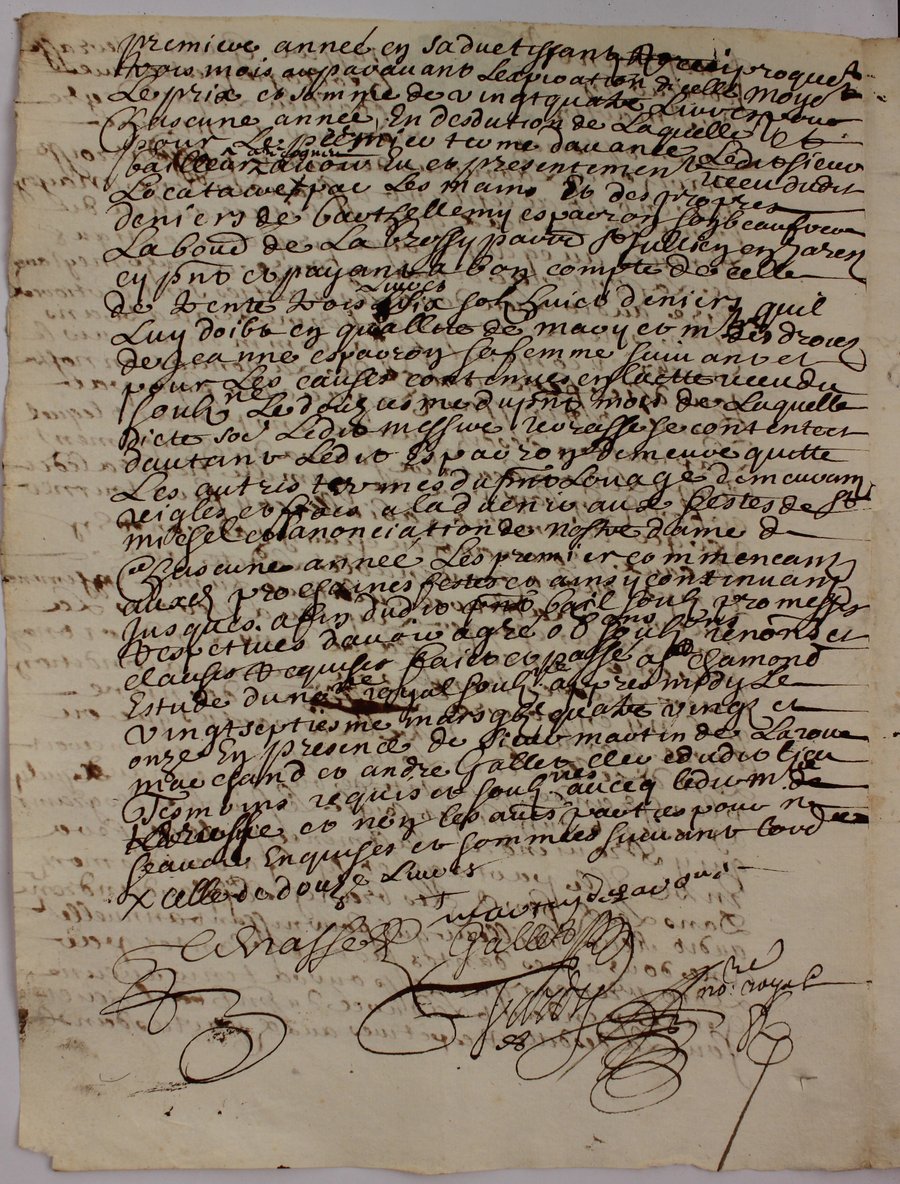 premiere année en sadvertissant reciproquet
trois mois auparavant lexpiration dicelle moye
Le prix et somme de vingt quatre Livres pour
Chascune année En desdution de Laquelle et
pour Le premier terme davance Ledit sieur
bailleur a confessé avoir eu et presentement receu dudit
Locataire par Les mains Et des propres
deniers de barthellemy espavron son beaufrere
Labour de La brossy parre St Jullien en Jaren
cy pnt et payant a bon compte de celle
de trente trois Livres dix solz huict deniers quil
Luy doibt en quallitte de mary et mre des droits
de jeanne espavron sa femme suivant et
pour Les causes contenues en lacte receu du
soubz ne Le douziesme du pnt mois de Laquelle
dicte soe Ledit messire terrasse se contente et
dautant Ledit Espavron demeure quitte
Les autres termes du pnt Louage demeurant
reigles et fixes a ladvenir aux festes de St
michel et lanonciation de nostre dame de
Chascune année Les premier commencant
auxd prochaines festes et ainsy continuant
Jusques a fin dudit pnt bail soubz promesses
respectives davoir agre obons soubzons renons et
clauses requises faict et passe a St chamond
Estude du nore royal soubze apres midy Le
vingt septiesme mars gbc quatre vingt et
onze En presence de sieur martin de Laroue
marchand et andre Gallet clerc dudit lieu
Tesmoins requis et soubz nes avecq ledit mre
terrasse et non les aues parties pour ne
scavoir Enquises et sommees suivant lord
X celle de douze Livres
Terrasse
Gallet
nore royal